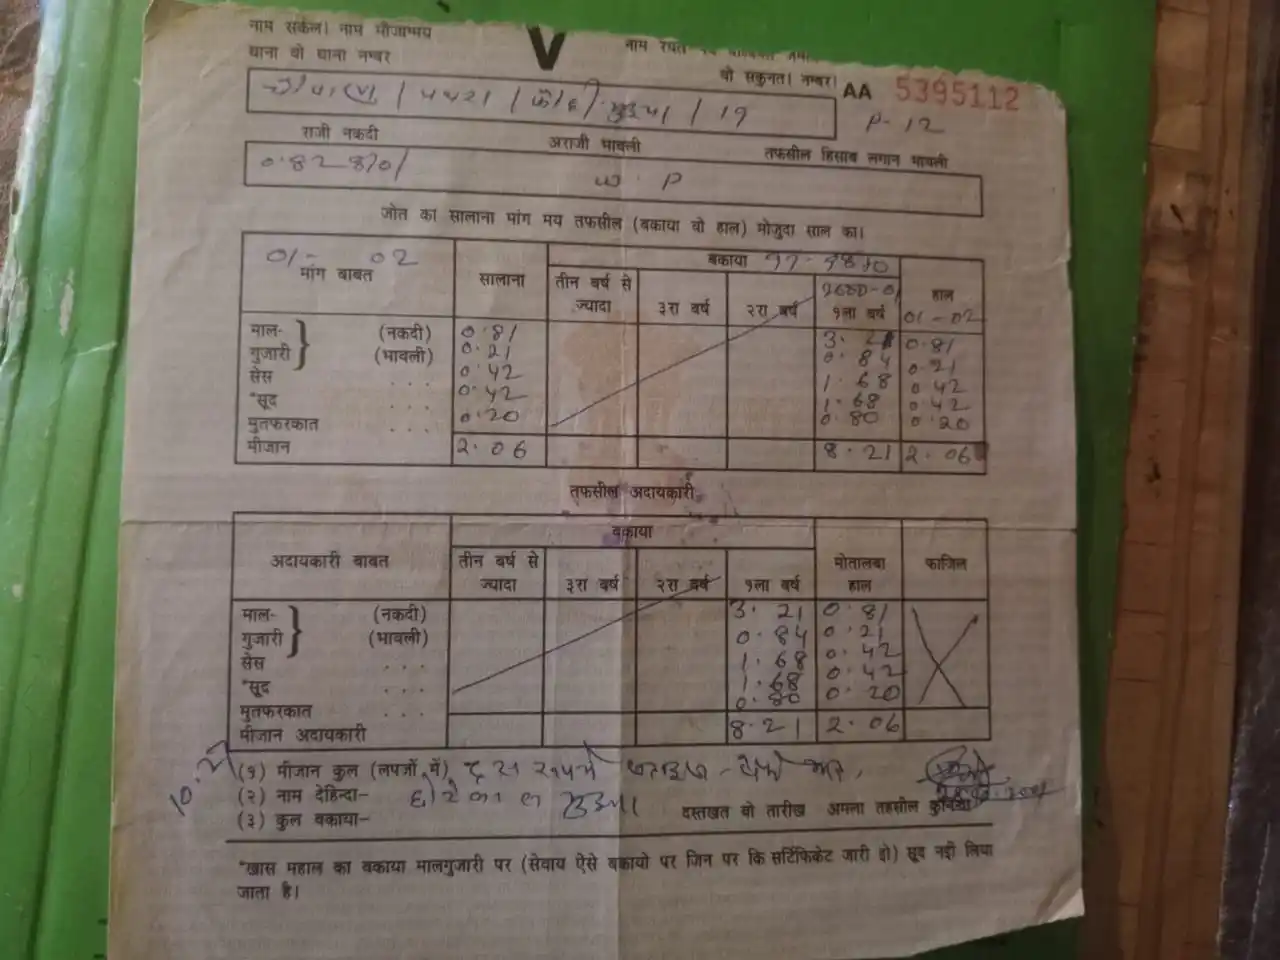 नाम सर्कल। नाम मौजामय
V
थाना वो थाना नम्बर
वो सकुनत। नम्बर। AA 5395112
19
P-12
राजी नकदी अराजी भावली तफसील हिसाब लगान भावली
W. P
जोत का सालाना मांग मय तफसील (बकाया वो हाल) मोजुदा साल का।
01- 02
मांग बाबत सालाना बकाया हाल
तीन वर्ष से ज्यादा ३रा वर्ष २रा वर्ष १ला वर्ष 01-02
माल- (नकदी) 0.81 3.21 0.81
गुजारी (भावली) 0.21 0.84 0.21
सेस . . . 0.42 1.68 0.42
*सूद . . . 0.42 1.68 0.42
मुतफरकात . . . 0.20 0.80 0.20
मीजान 2.06 8.21 2.06
तफसील अदायकारी
अदायकारी बाबत बकाया मोतालबा हाल फाजिल
तीन वर्ष से ज्यादा ३रा वर्ष २रा वर्ष १ला वर्ष
माल- (नकदी) 3.21 0.81
गुजारी (भावली) 0.84 0.21
सेस . . . 1.68 0.42
*सूद . . . 1.68 0.42
मुतफरकात . . . 0.80 0.20
मीजान अदायकारी 8.21 2.06
10.27
(१) मीजान कुल (लपजों में)
(२) नाम देहिन्दा-
दस्तखत वो तारीख अमला तहसील कुनिन्दा
(३) कुल बकाया-
*खास महाल का बकाया मालगुजारी पर (सेवाय ऐसे बकायो पर जिन पर कि सर्टिफिकेट जारी हो) सूद नहीं लिया
जाता है।